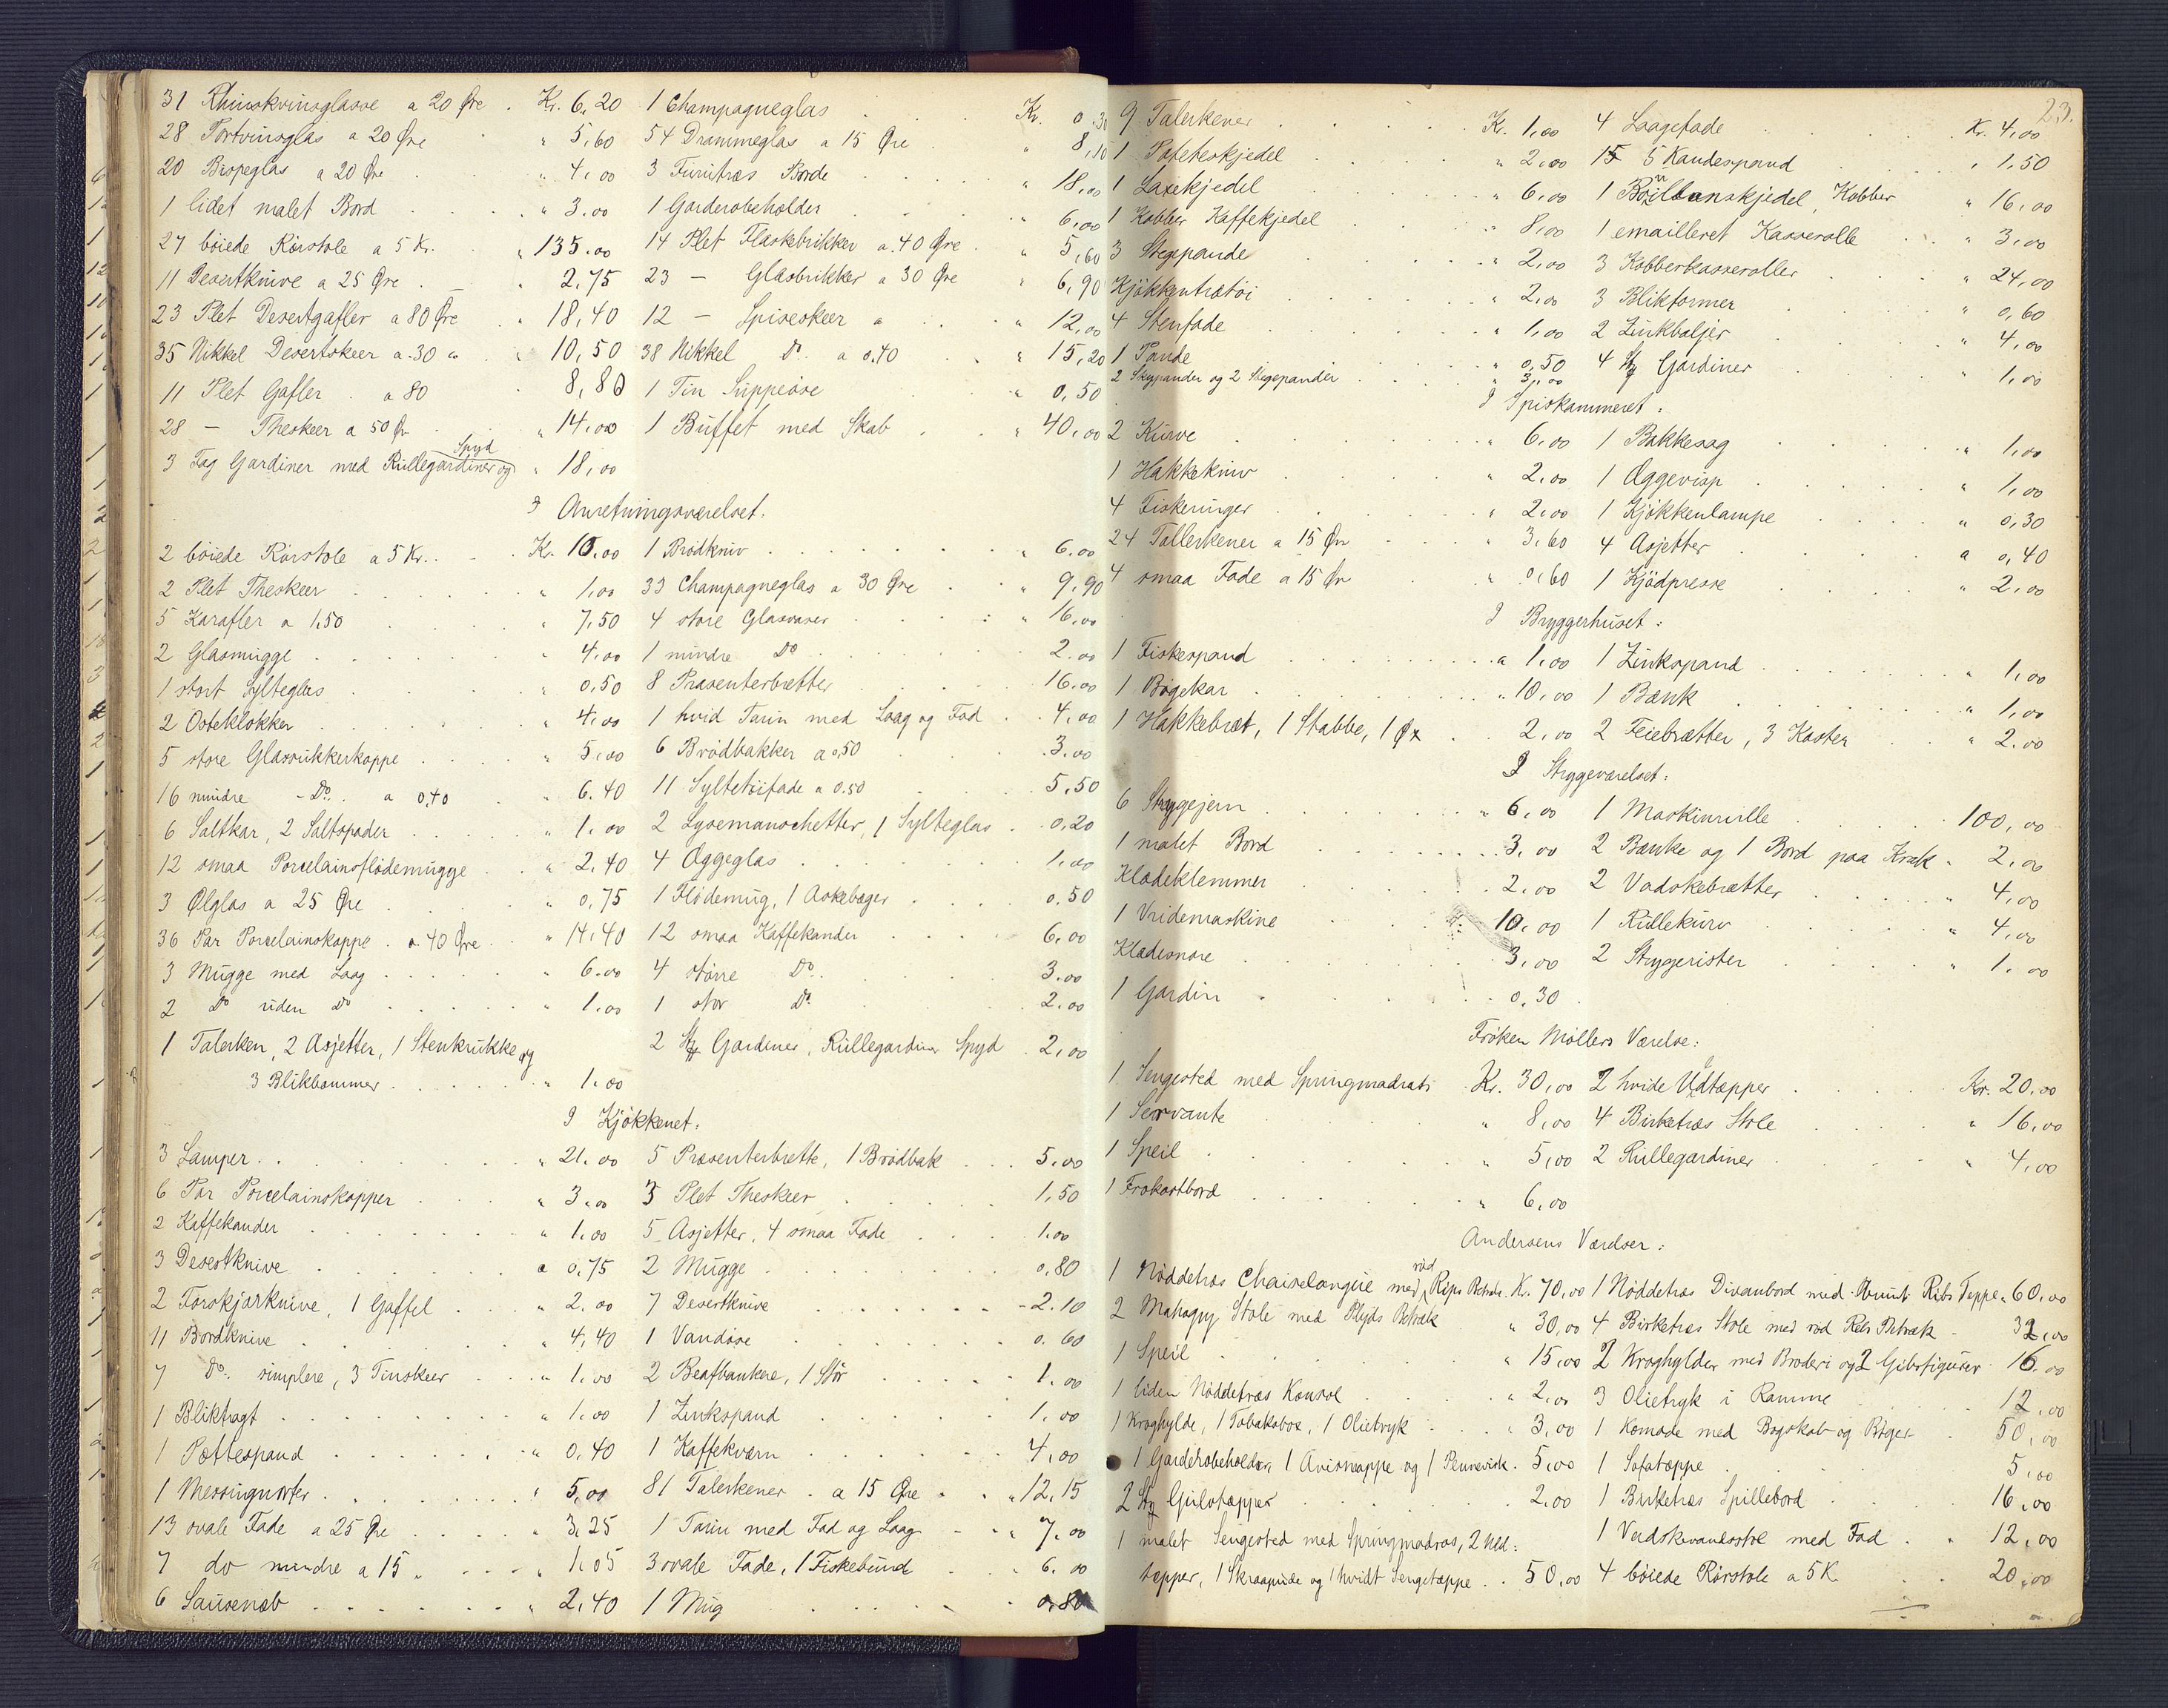 31 Rhinskvinsglasse a 20 Øre . Kr. 6,20
28 Portvinsglas a 20 Øre " 5,60
20 Bropeglas a 20 Øre " 4,00
1 lidet malet Bord " 3.00
27 böiede Rörstole a 5 Kr. " 135.00
11 Desertknive a 25 Øre . 2,75
23 Plet Desertgafler a 80 Øre " 18,40
35 Nikkel Desertskeer a 30 " " 10,50
11 Plet Gafler . a 80 8,80
28 — Theskeer a 50 Ør " 14,00
3 Fag Gardiner med Rullegardiner og Spyd " 18,00
1 Champagneglas Kr. 0.30
54 Drammeglas a 15 Øre " 8,10
3 Furutræs Borde " 18,00
1 Garderobeholder 6,00
14 Plet Flaskebrikker a 40 Øre " 5,60
23 — Glasbrikker a 30 Øre " 6,90
12 — Spiseskeer a " 12,00
38 Nikkel Do. a 0.40 " 15,20
1 Tin Suppeöse " 0,50
1 Buffet med Skab " 40,00
I Anretningsværelset.
2 böiede Rörstole a 5 Kr. Kr. 10.00
2 Plet Theskeer " 1,00
5 Karafler a 1,50 " 7,50
2 Glasmugge " 4,00
1 stort Sylteglas " 0,50
2 Osteklokker " 4,00
5 store Glassukkerkoppe " 5,00
16 mindre - Do. a 0,40 " 6.40
6 Saltkar, 2 Saltspader " 1.00
12 smaa Porcelainsflödemugge " 2,40
3 Ølglas a 25 Øre " 0,75
36 Par Porcelainskoppe . a 40 Øre " 14,40
3 Mugge med Laag " 6.00
2 Do uden Do " 1.00
1 Talerken, 2 Asjetter, 1 Stenkrukke og
3 Blikbommer " 1.00
1 Brödkniv " 6.00
33 Champagneglas a 30 Øre " 9,90
4 store Glasvaser " 16,00
1 mindre Do 2.00
8 Præsenterbretter 16.00
1 hvid Tarin med Laag og Fad 4,00
6 Brödbakker a 0,50 3.00
11 Syltetöifade a 0.50 5,50
2 Lysemanschetter, 1 Sylteglas 0,20
4 Æggeglas 1.00
1 Flödemug, 1 Askebæger 0.50
12 smaa Kaffekander 6,00
4 större Do. 3.00
1 stor Do. 2.00
2 Stk Gardiner, Rullegardiner Spyd . 2,00
I Kjökkenet.
3 Lamper " 21.00
6 Par Porcelainskopper " 3.00
2 Kaffekander " 1.00
3 Desertknive 0,75
2 Forskjærknive, 1 Gaffel " 2.00
11 Bordknive " 4,40
7 Do. simplere, 3 Tinskeer " 1.00
1 Bliktragt " 1.00
1 Pottespand " 0,40
1 Messingmorter " 5,00
13 ovale Fade a 25 Øre " 3,25
7 do mindre a 15 " 1,05
6 Sausenæb " 2,40
5 Præsenterbrette, 1 Brödbak 5,00
3 Plet Theskeer 1,50
5 Asjetter, 4 smaa Fade 1.00
2 Mugge 0,80
7 Desertknive 2.10
1 Vandöse 0.60
2 Beafbankere, 1 Stör 1.00
1 Zinkspand 1.00
1 Kaffekværn 4,00
81 Talerkener . a 15 Øre " 12,15
1 Tarin med Fad og Laag " 7.00
3 ovale Fade, 1 Fiskebund " 6.00
1 Mug 0.80
23.
9 Talerkener Kr. 1,00
1 Poteteskjedel " 2,00
1 Laxekjedel " 6,00
1 Kobber Kaffekjedel 8,00
3 Stegepande " 2,00
Kjökkentrætöi " 2,00
4 Stenfade " 1,00
1 Pande " 0,50
2 Skypander og 2 Stegepander " 3,00
4 Laagefade Kr. 4,00
15 5 Kandespand " 1,50
1 Bouillonskjedel, Kobber " 16,00
1 emailleret Kasserolle " 3,00
3 Kobberkasseroller " 24,00
3 Blikformer " 0,60
2 Zinkbaljer " 4,00
4 Stk Gardiner " 1,00
I Spiskammeret:
2 Kurve " 6,00
1 Hakkekniv " 2,00
4 Fiskeringer " 2,00
24 Tallerkener a 15 Ør " 3,60
4 smaa Fade a 15 Ør " 0,60
1 Bakkesag " 1,00
1 Æggevisp " 1,00
1 Kjökkenlampe " 0,30
4 Asjetter 0,40
1 Kjödpresse " 2,00
I Bryggerhuset:
1 Fiskespand 1,00
1 Bögekar " 10,00
1 Hakkebræt, 1 Stabbe, 1 Øx 2,00
1 Zinkspand " 1,00
1 Bænk " 1,00
2 Feiebrætter, 3 Koster " 2.00
I Strygeværelset:
6 Strygejern " 6,00
1 malet Bord 3,00
Klædeklemmer 2,00
1 Vridemaskine 10,00
Klædesnore 3,00
1 Gardin 0,30
1 Maskinrulle 100,00
2 Bænke og 1 Bord paa Krak " 2,00
2 Vadskebrætter " 4,00
1 Rullekurv " 4,00
2 Strygerister " 1.00
Fröken Möllers Værelse:
1 Sengested med Springmadrats Kr. 30,00
1 Servante " 8,00
1 Speil " 5,00
1 Frokostbord " 6,00
2 hvide Uldtæpper Kr. 20,00
4 Birketræs Stole " 16,00
2 Rullegardiner " 4,00
Andersens Værelser:
1 Nöddetræs Chaiselongue med röd Rips Betræk Kr. 70,00
2 Mahogny Stole med Plyds Betræk " 30,00
1 Speil " 15,00
1 liden Nöddetræs Konsol " 2,00
1 Kroghylde, 1 Tobaksbox, 1 Olietryk " 3,00
1 Garderobeholder, 1 Avismappe og 1 Pennevisk . 5,00
2 Stk Gulvtæpper 2,00
1 malet Sengested med Springmadras, 2 Uld:
tæpper, 1 Skraapude og 1 hvidt Sengetæppe . . 50,00
1 Nöddetræs Divanbord med Brunt Ribs Teppe " 60,00
4 Birketræs Stole med röd Rels Betræk 32,00
2 Kroghylder med Broderi og 2 Gibsfigurer 16.00
3 Olietryk i Ramme 12,00
1 Komode med Bogskab og Böger 50,00
1 Sofatæppe 5,00
1 Birketræs Spillebord 16,00
1 Vadskevandsstol med Fad 12,00
4 böiede Rörstole a 5 K 20,00